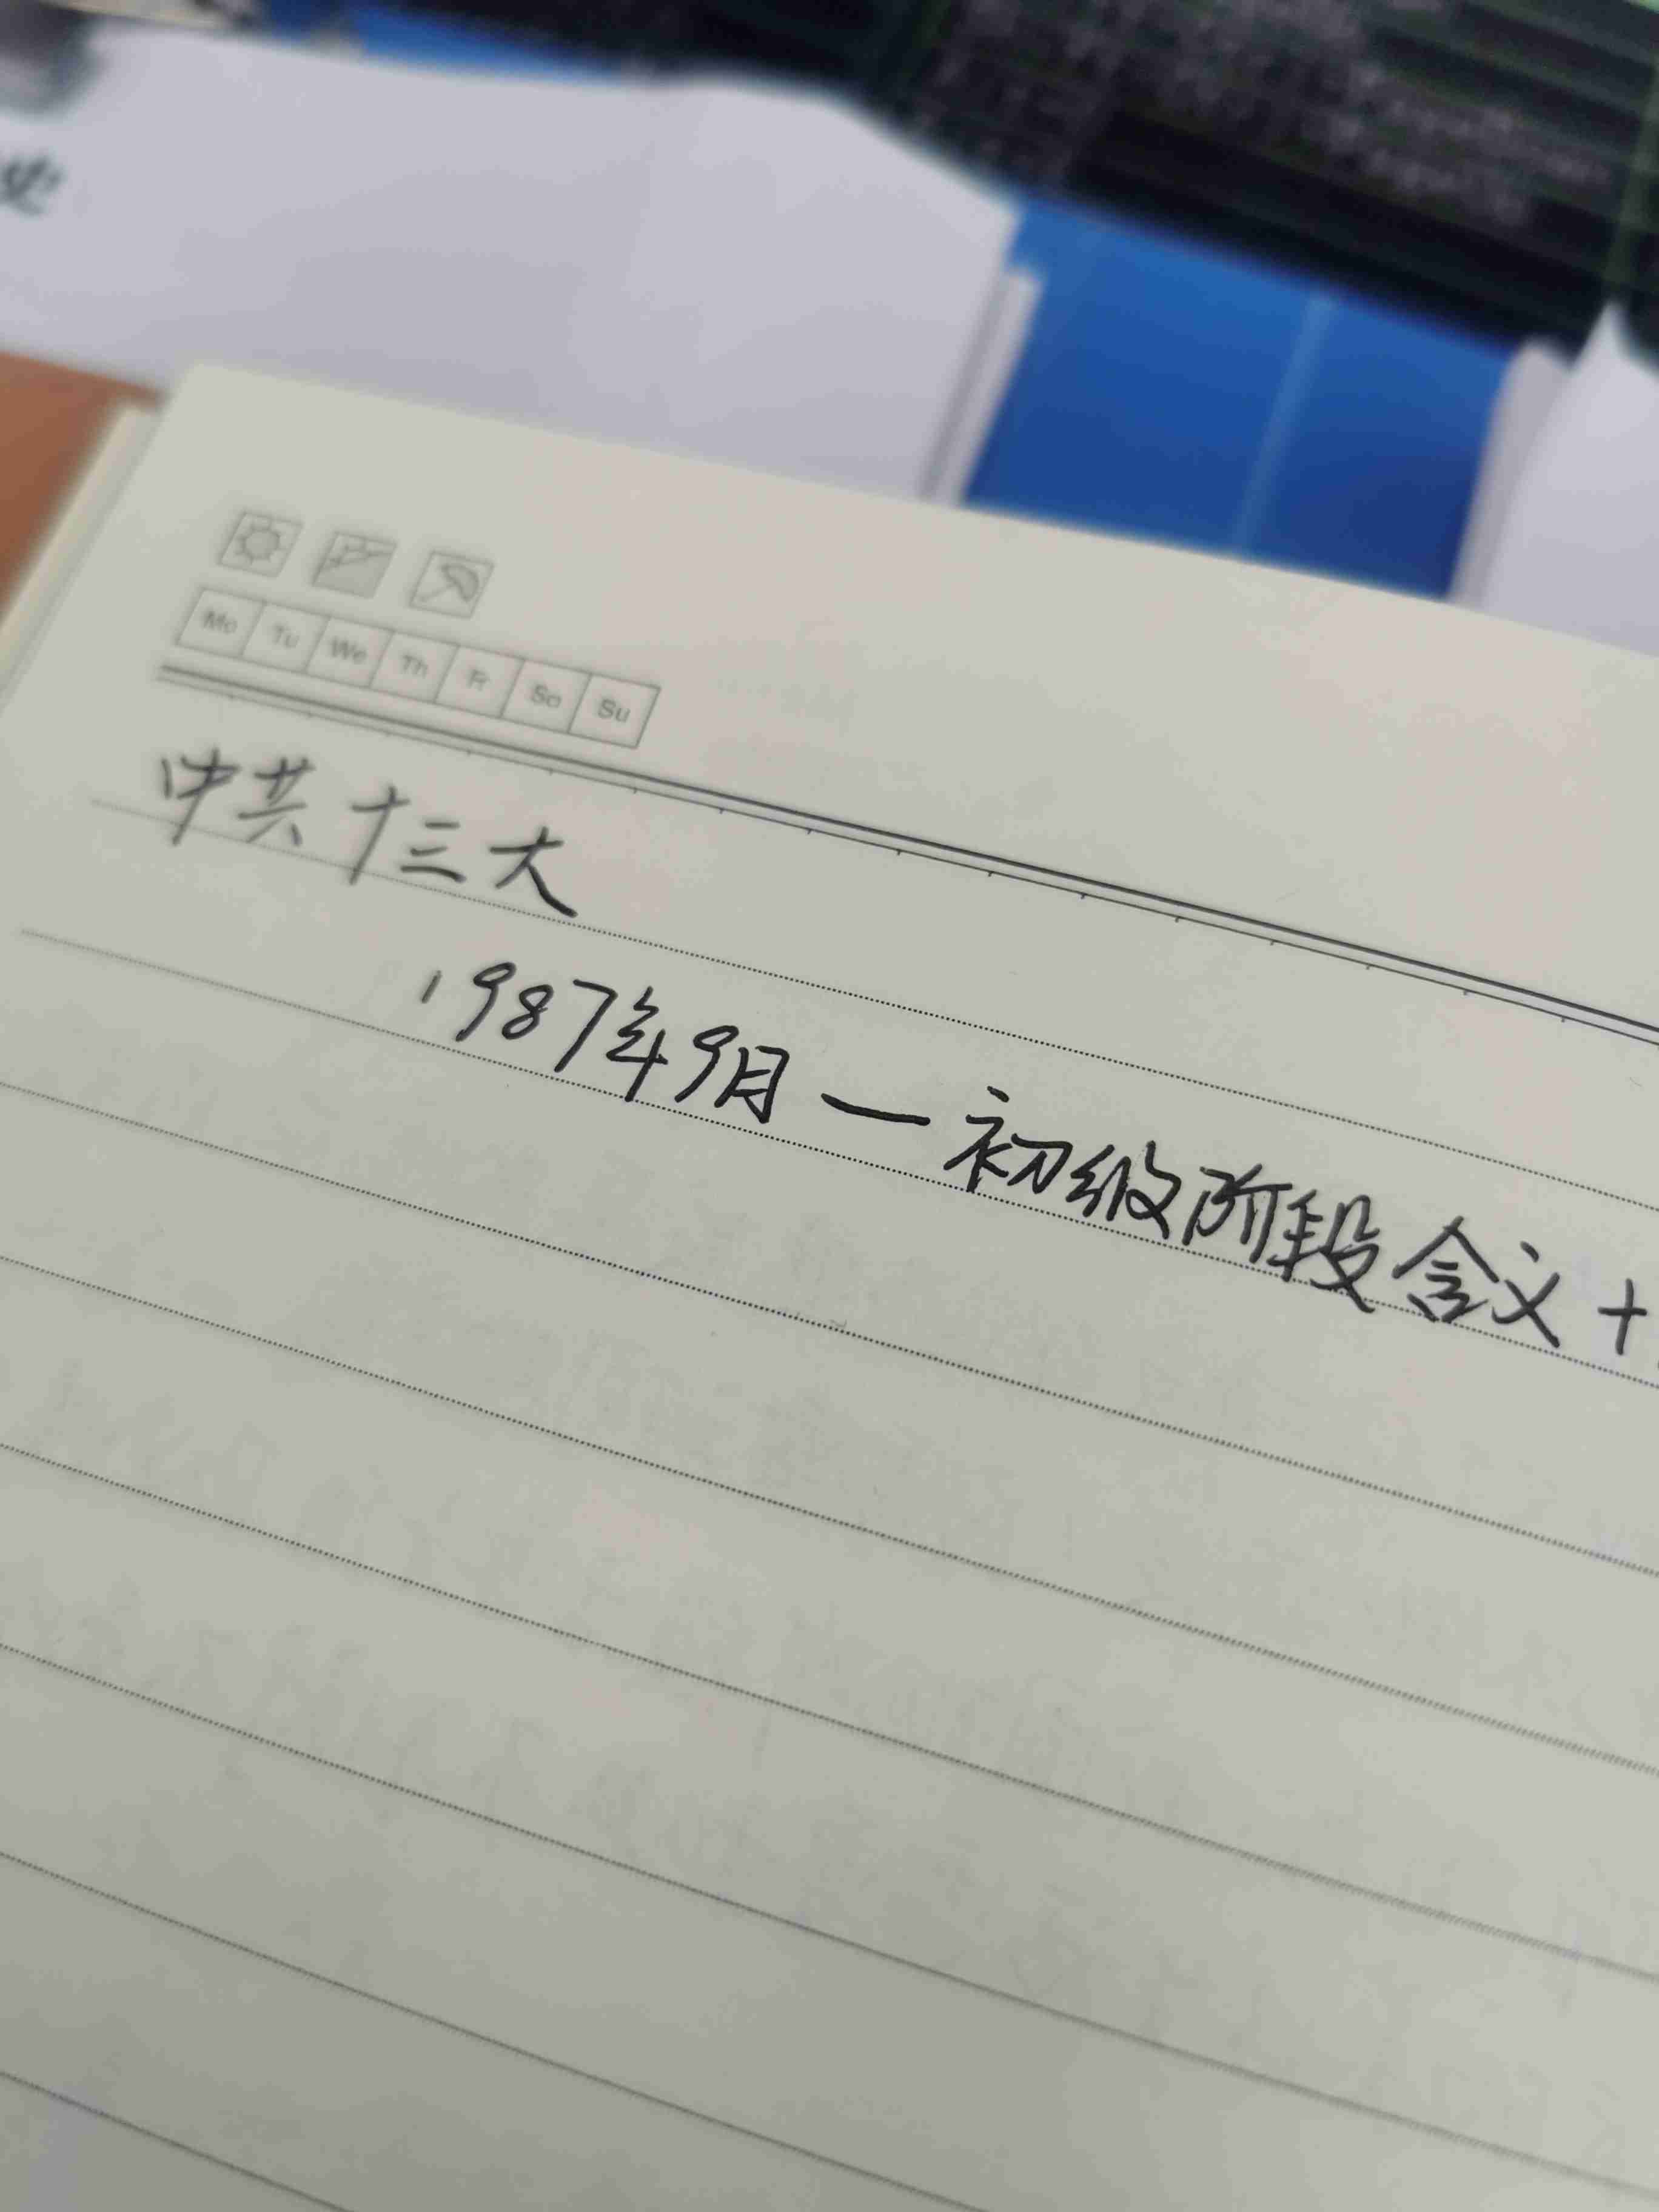 史
Mo Tu We Th Fr Sa Su
中共十三大
1987年9月—初级阶段含义+